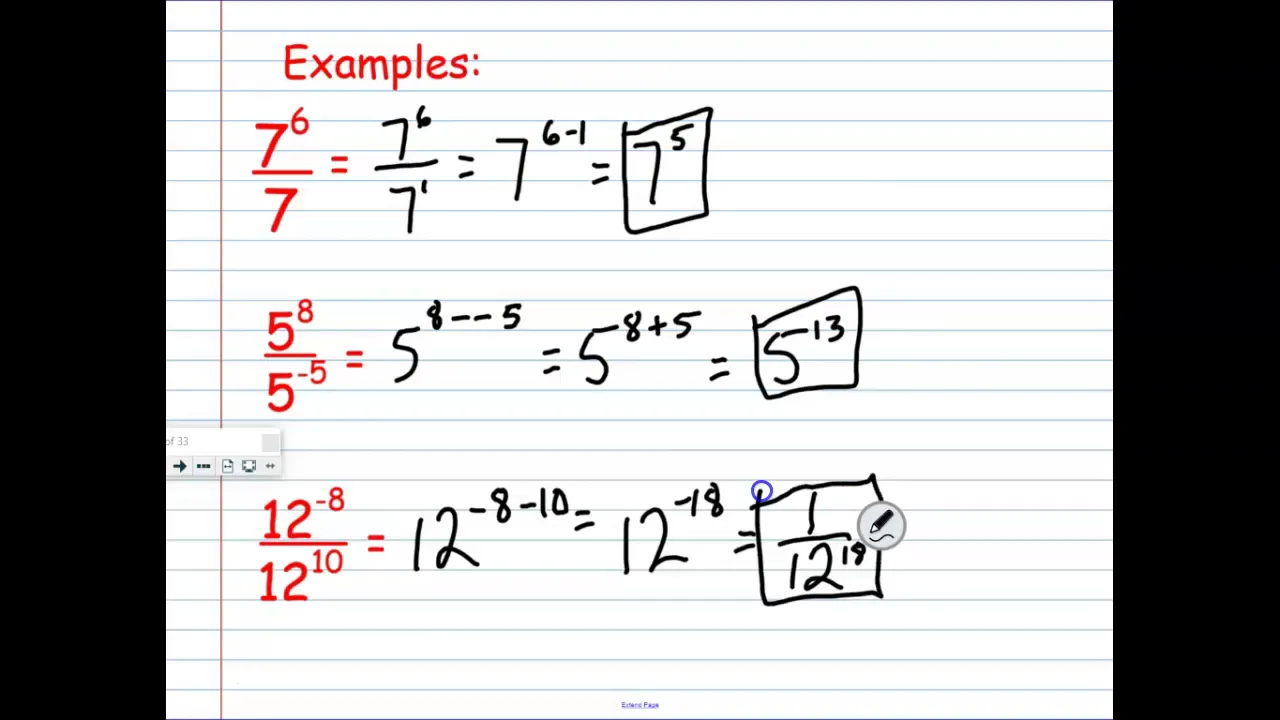 Examples:
7^6/7 = 7^6/7^1 = 7^(6-1) = 7^5
5^8/5^-5 = 5^(8--5) = 5^(8+5) = 5^13
of 33
12^-8/12^10 = 12^(-8-10) = 12^-18 = 1/12^18
Extend Page